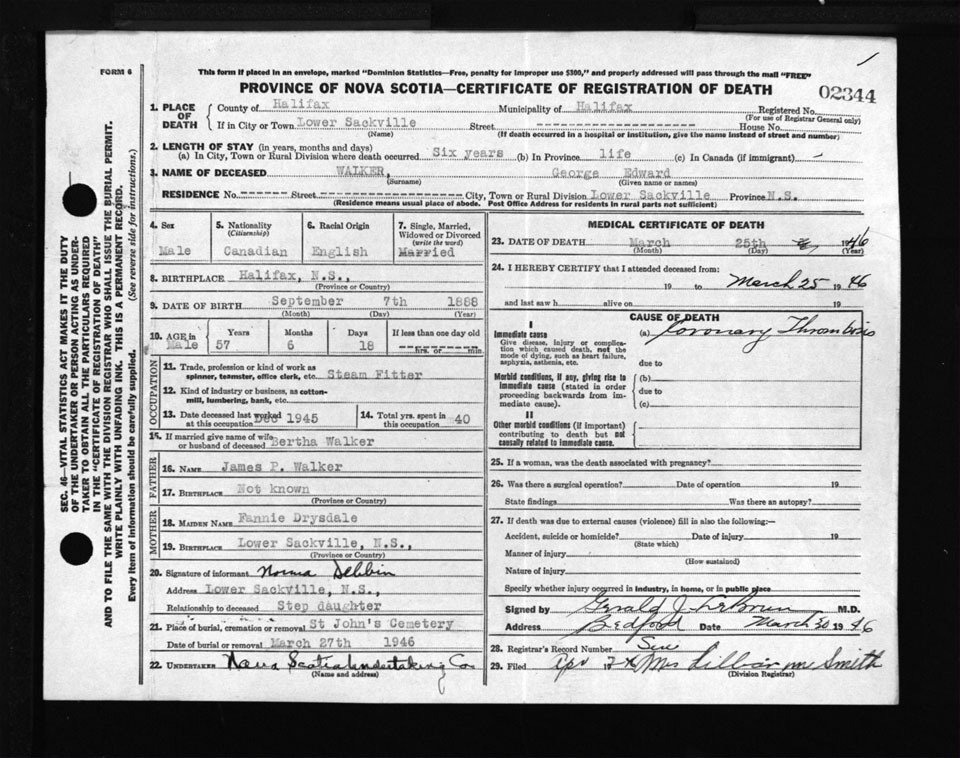 FORM 6
This form if placed in an envelope, marked "Dominion Statistics—Free, penalty for improper use $300," and properly addressed will pass through the mail "FREE"
PROVINCE OF NOVA SCOTIA—CERTIFICATE OF REGISTRATION OF DEATH
02344
1. PLACE OF DEATH
County of Halifax Municipality of Halifax Registered No.
(For use of Registrar General only)
If in City or Town Lower Sackville Street House No.
(Name) (If death occurred in a hospital or institution, give the name instead of street and number)
2. LENGTH OF STAY (in years, months and days)
(a) In City, Town or Rural Division where death occurred Six years (b) In Province life (c) In Canada (if immigrant)
3. NAME OF DECEASED WALKER, George Edward
(Surname) (Given name or names)
RESIDENCE No. Street City, Town or Rural Division Lower Sackville Province N.S.
(Residence means usual place of abode. Post Office Address for residents in rural parts not sufficient)
SEC. 46—VITAL STATISTICS ACT MAKES IT THE DUTY
OF THE UNDERTAKER OR PERSON ACTING AS UNDER-
TAKER TO OBTAIN ALL THE PARTICULARS REQUIRED
IN THE "CERTIFICATE OF REGISTRATION OF DEATH"
AND TO FILE THE SAME WITH THE DIVISION REGISTRAR WHO SHALL ISSUE THE BURIAL PERMIT.
WRITE PLAINLY WITH UNFADING INK. THIS IS A PERMANENT RECORD.
Every item of information should be carefully supplied. (See reverse side for instructions.)
4. Sex
Male
5. Nationality
(Citizenship)
Canadian
6. Racial Origin
English
7. Single, Married,
Widowed or Divorced
(write the word)
Married
8. BIRTHPLACE Halifax, N.S.,
(Province or Country)
9. DATE OF BIRTH September 7th 1888
(Month) (Day) (Year)
10. AGE in Years Months Days If less than one day old
Male 57 6 18 hrs. or min.
OCCUPATION
11. Trade, profession or kind of work as
spinner, teamster, office clerk, etc. Steam Fitter
12. Kind of industry or business, as cotton-
mill, lumbering, bank, etc.
13. Date deceased last worked
at this occupation Dec 1945
14. Total yrs. spent in
this occupation 40
15. If married give name of wife
or husband of deceased Bertha Walker
FATHER
16. NAME James P. Walker
17. BIRTHPLACE Not known
(Province or Country)
MOTHER
18. MAIDEN NAME Fannie Drysdale
19. BIRTHPLACE Lower Sackville, N.S.,
(Province or Country)
20. Signature of informant Norma
Address Lower Sackville, N.S.,
Relationship to deceased Step daughter
21. Place of burial, cremation or removal St John's Cemetery
Date of burial or removal March 27th 1946
22. UNDERTAKER Nova Scotia Undertaking Co
(Name and address)
MEDICAL CERTIFICATE OF DEATH
23. DATE OF DEATH March 25th 1946
(Month) (Day) (Year)
24. I HEREBY CERTIFY that I attended deceased from:
19 to March 25 1946
and last saw h alive on 19
CAUSE OF DEATH
I
Immediate cause
Give disease, injury or complica-
tion which caused death, not the
mode of dying, such as heart failure,
asphyxia, asthenia, etc.
(a) Coronary Thrombosis
due to
Morbid conditions, if any, giving rise to
immediate cause (stated in order
proceeding backwards from im-
mediate cause).
(b)
due to
(c)
II
Other morbid conditions (if important)
contributing to death but not
causally related to immediate cause.
25. If a woman, was the death associated with pregnancy?
26. Was there a surgical operation? Date of operation 19
State findings Was there an autopsy?
27. If death was due to external causes (violence) fill in also the following:—
Accident, suicide or homicide? Date of injury 19
(State which)
Manner of injury
(How sustained)
Nature of injury
Specify whether injury occurred in industry, in home, or in public place
Signed by Gerald J. M.D.
Address Bedford Date March 1946
28. Registrar's Record Number
29. Filed Apr 19 Mrs Smith
(Division Registrar)